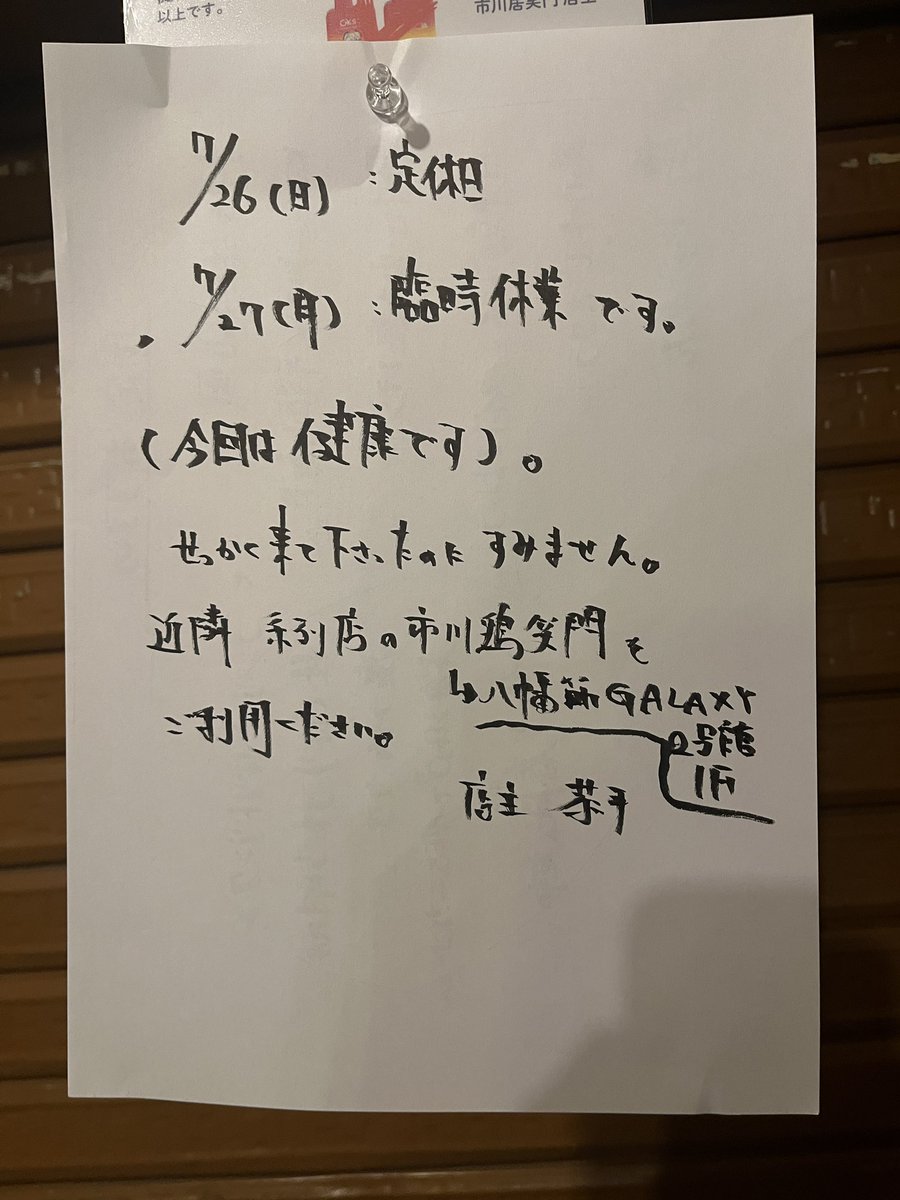 以上です。
CAKS
市川居笑門店主
7/26(日) : 定休日
. 7/27(月) : 臨時休業です。
(今回は健康です)。
せっかく来て下さったのにすみません。
近隣 系列店の市川鶏笑門を
↳八幡筋GALAXY
2号館
1F
ご利用ください。
店主 恭平